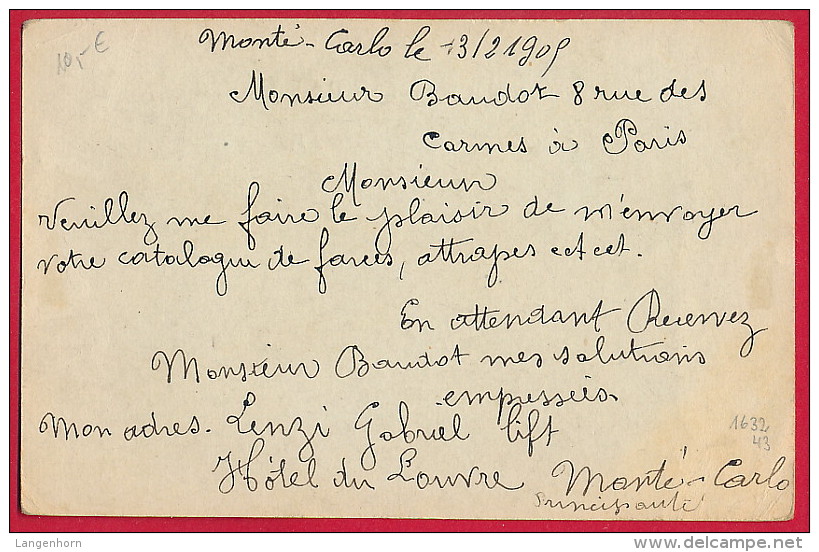 10,- €
Monté-Carlo le 13/2 1905
Monsieur Baudot 8 rue des
Carmes à Paris
Monsieur
Veuillez me faire le plaisir de m'envoyer
votre catalogue de farces, attrapes ect ect.
En attendant Recevez
Monsieur Baudot mes salutions
empressées.
Mon adres. Lenzi Gabriel lift
Hôtel du Louvre Monté-Carlo
Principauté
1632
43
Langenhorn
delcampe.net